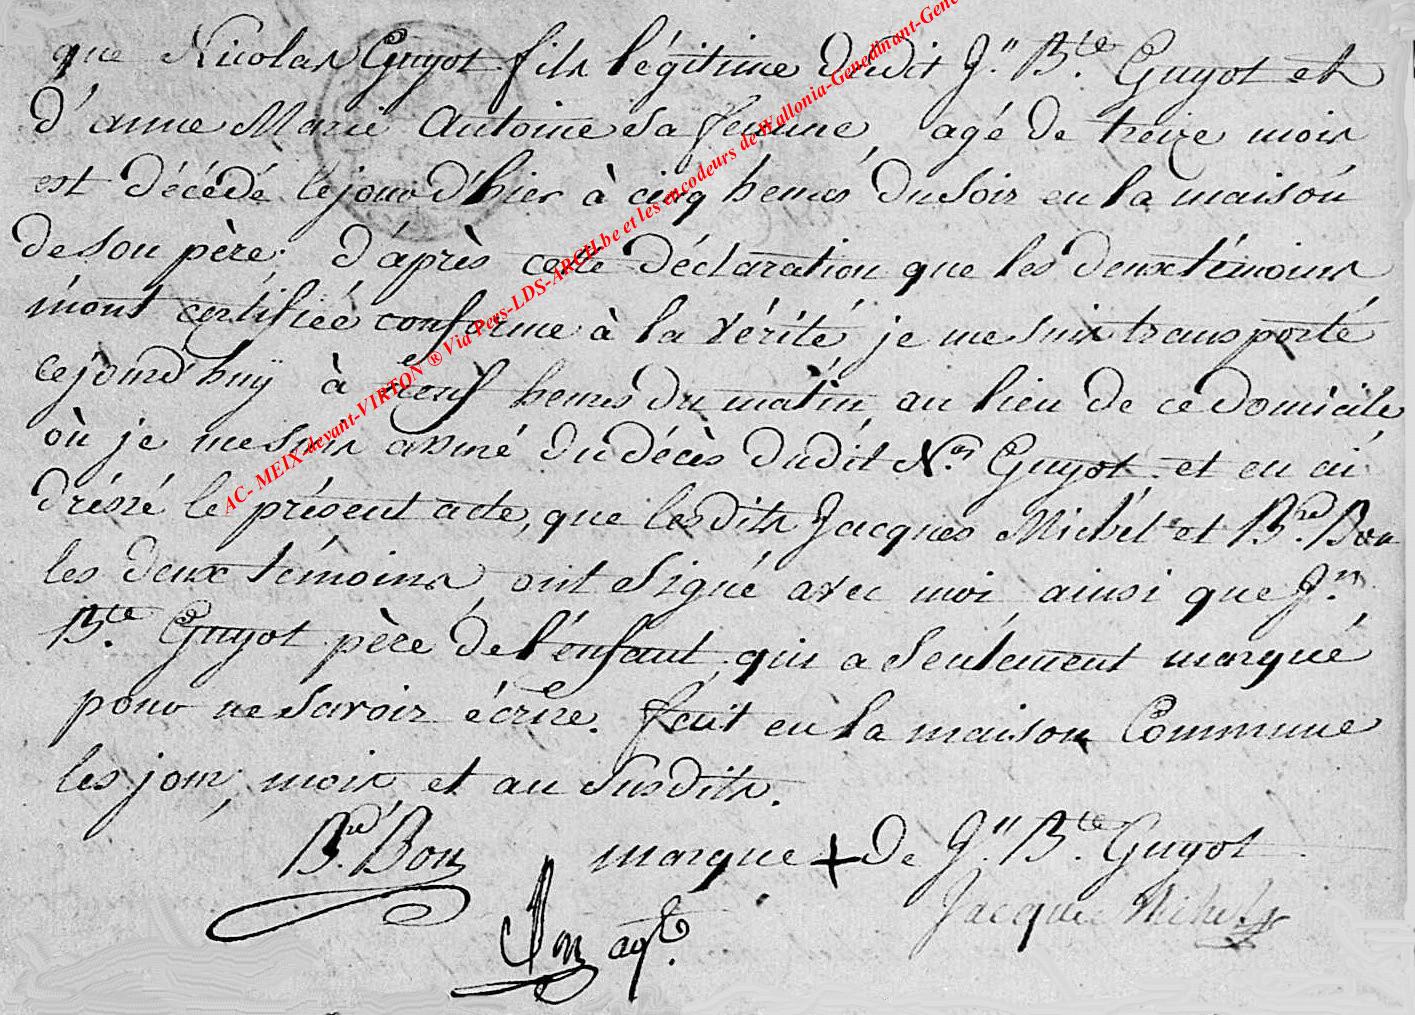 que Nicolas Guyot fils légitime dudit Jn. Bte. Guyot et
d'anne Marie Antoine sa femme, agé de treize mois
est décédé le jour d'hier à cinq heures du soir en la maison
de son père; d'après cette déclaration que les deux témoins
m'ont certifiée conforme à la vérité je me suis transporté
cejourd'huÿ à neuf heures du matin, au lieu de ce domicile
où je me suis assuré du décès dudit Nas Guyot et en ai
dréssé le présent acte, que lesdits Jacques Michel et Brd. Bon
les deux témoins, ont signé avec moi, ainsi que Jn.
Bte. Guyot père de l'enfant qui a seulement marqué
pour ne savoir écrire. fait en la maison Commune
les jour, mois, et an susdits.
Brd. Bon marque + de Jn. Bte. Guyot
Jacque Michel
Bon agt.
AC- MEIX-devant-VIRTON ® Via Pers-LDS-ARCH.be et les encodeurs de Wallonia-Genedinant-Gene